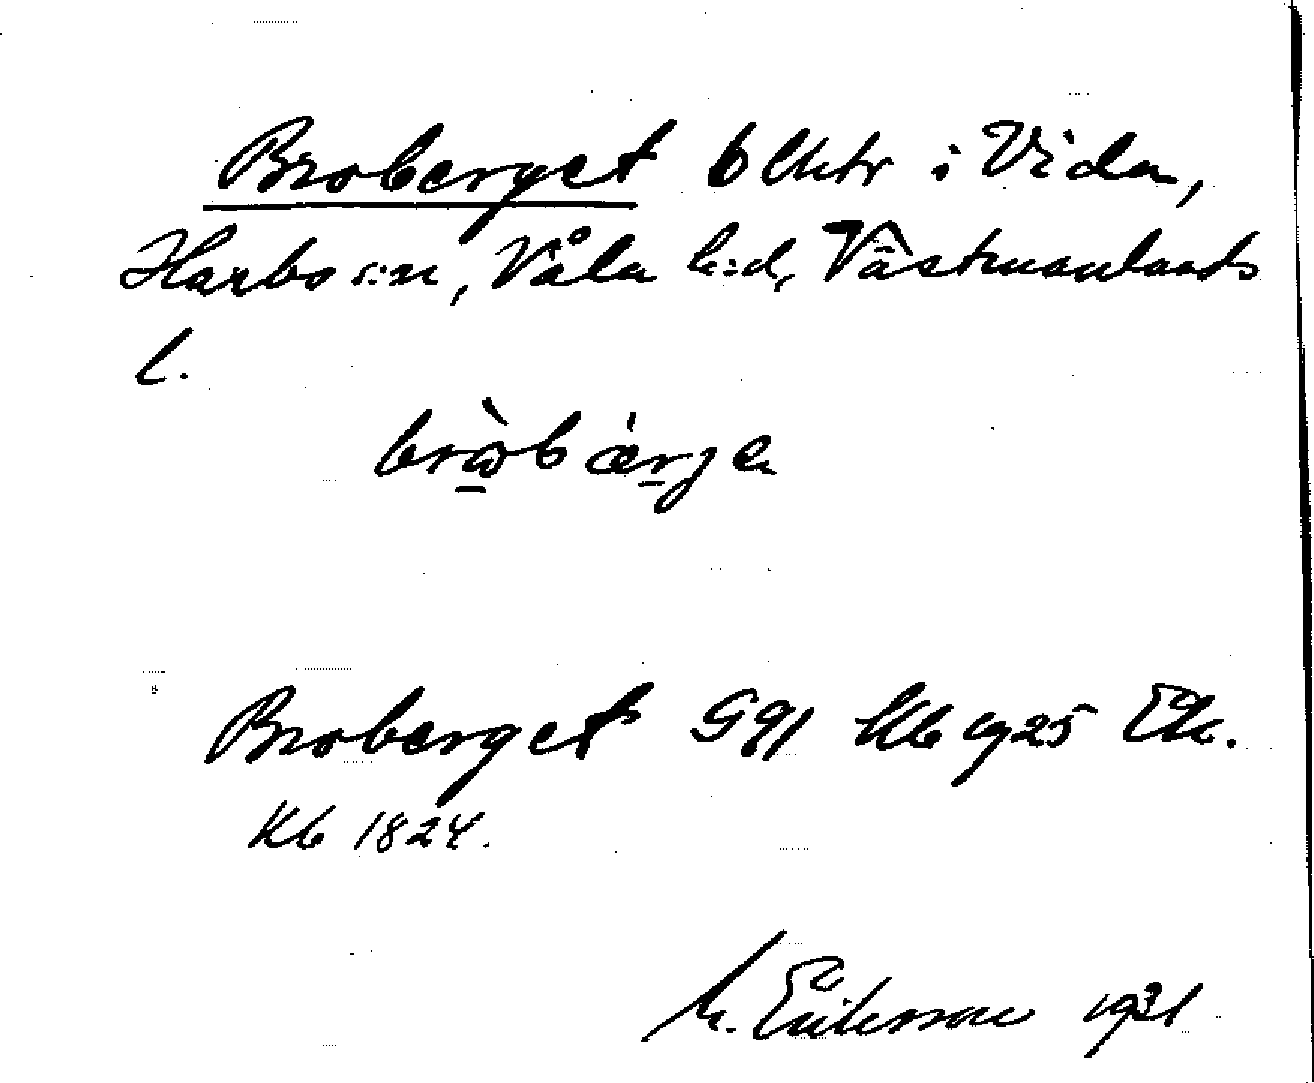 Broberget blktr i Vida,
Harbo s:n, Våla h:d, Västmanlands
l.
bròbærje
Broberget Ggl Kb 1925 Ek.
Kb 1824.
M. Eriksson 1931